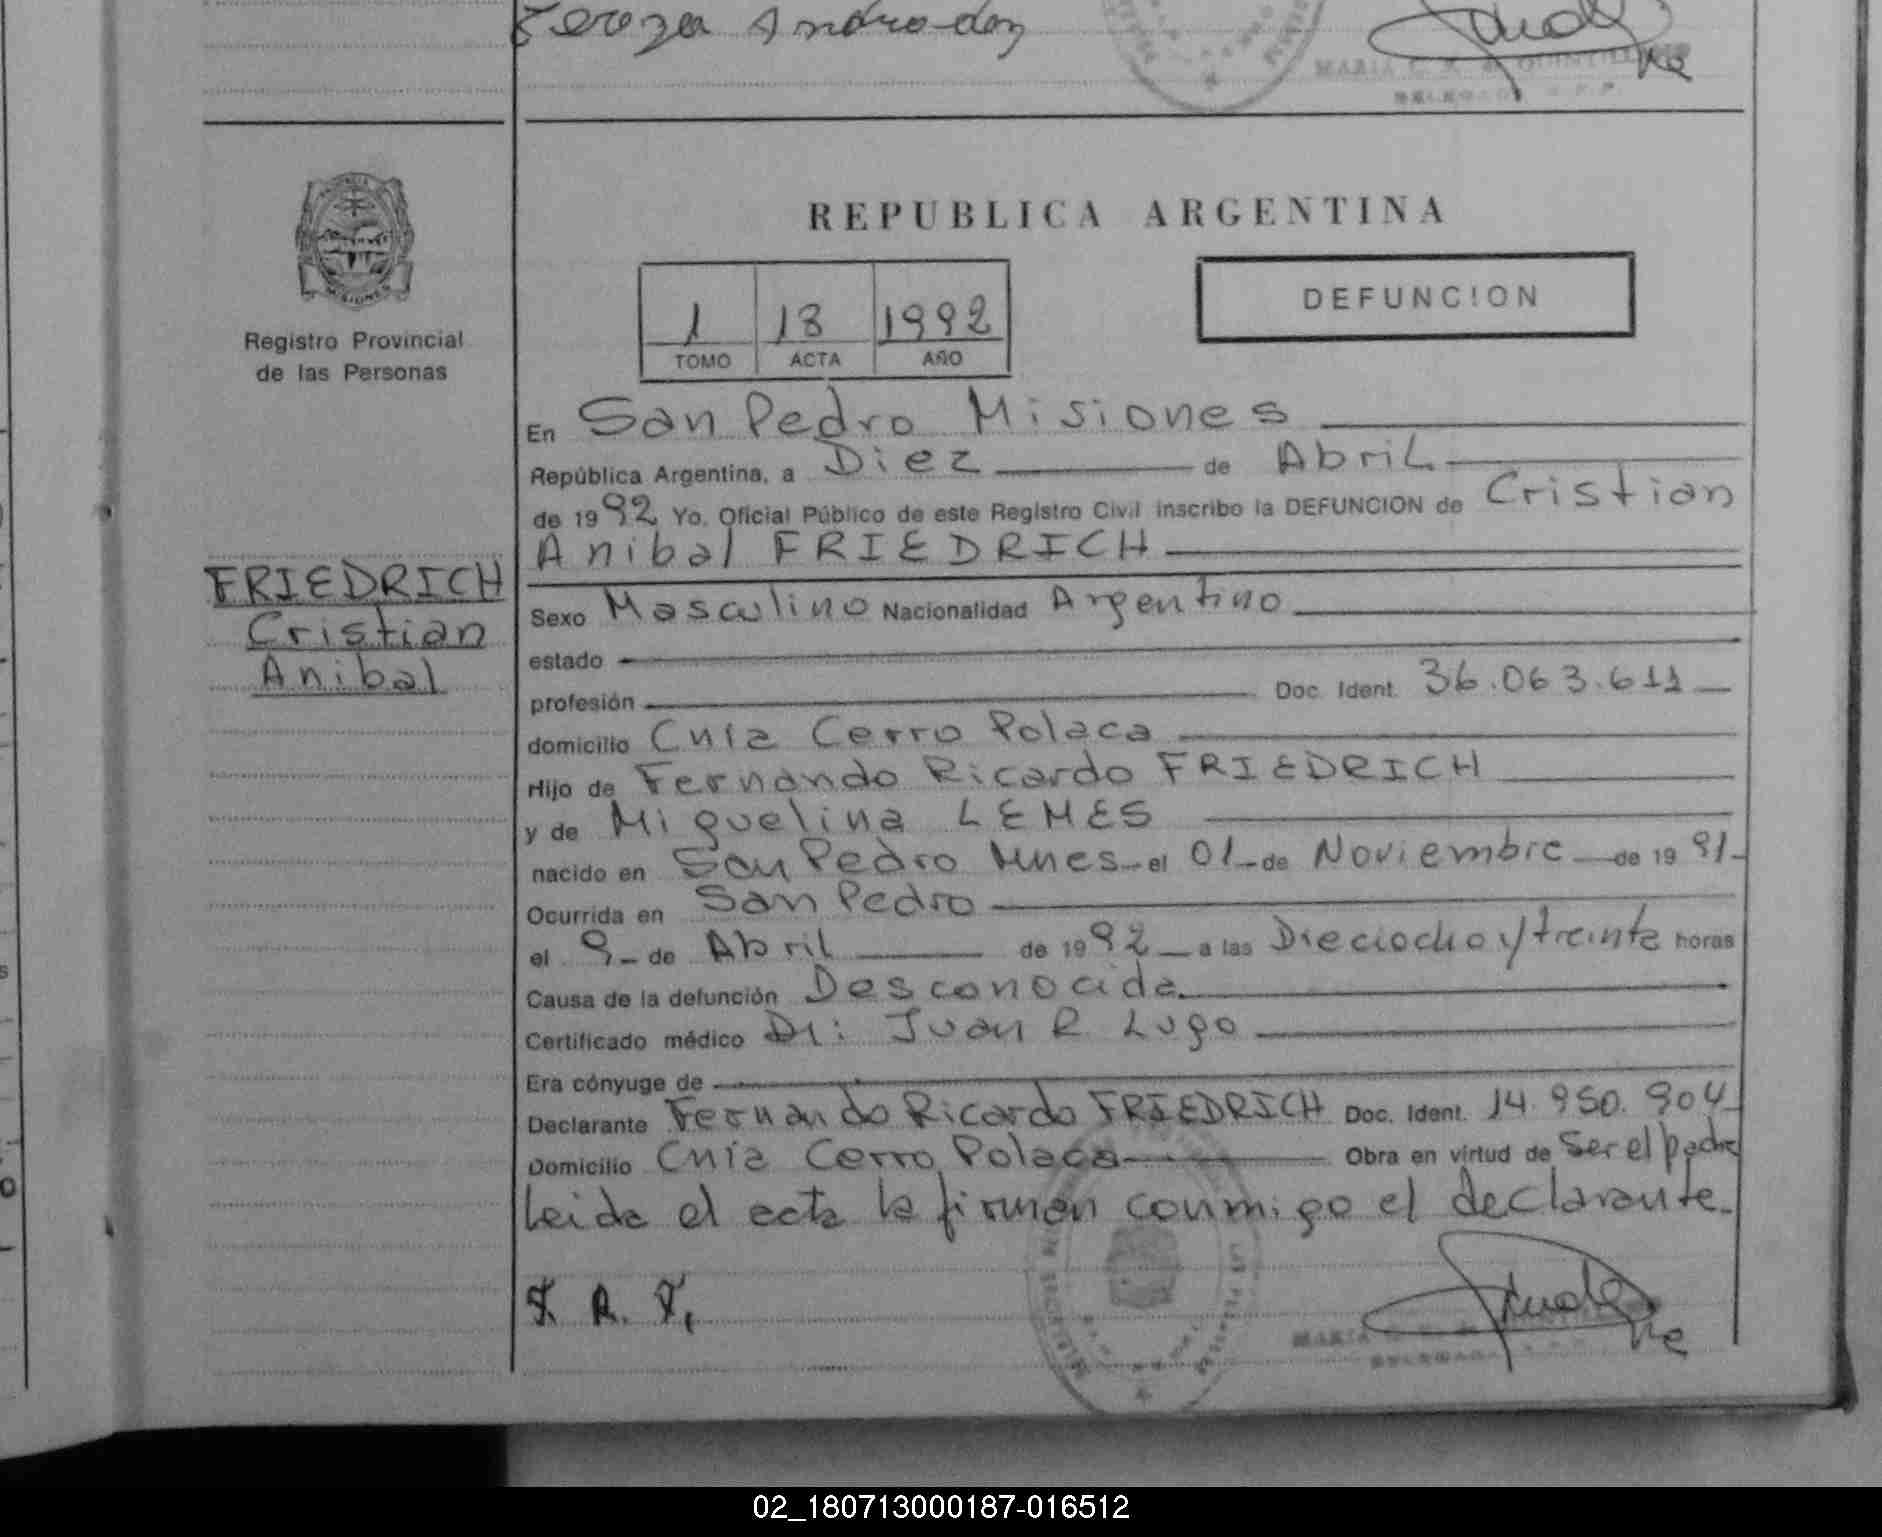 Tereza Andra
MARIA C.
REPUBLICA ARGENTINA
PROVINCIA
MISIONES
Registro Provincial
de las Personas
1 13 1992
TOMO ACTA AÑO
DEFUNCION
En San Pedro Misiones
República Argentina, a Diez de Abril
de 1992 Yo, Oficial Público de este Registro Civil inscribo la DEFUNCION de Cristian
Anibal FRIEDRICH
FRIEDRICH
Cristian
Anibal
Sexo Masculino Nacionalidad Argentino
estado
profesión Doc. Ident. 36.063.611
domicilio Cnia Cerro Polaca
Hijo de Fernando Ricardo FRIEDRICH
y de Miguelina LEMES
nacido en San Pedro Mnes el 01 de Noviembre de 1991
Ocurrida en San Pedro
el 9 de Abril de 1992 a las Dieciocho y treinta horas
Causa de la defunción Desconocida
Certificado médico Dr: Juan R Lugo
Era cónyuge de
Declarante Fernando Ricardo FRIEDRICH Doc. Ident. 14.950.904
Domicilio Cnia Cerro Polaca Obra en virtud de Ser el padre
Leida el acta la firman conmigo el declarante.
F. R. F.
MARIA
02_180713000187-016512